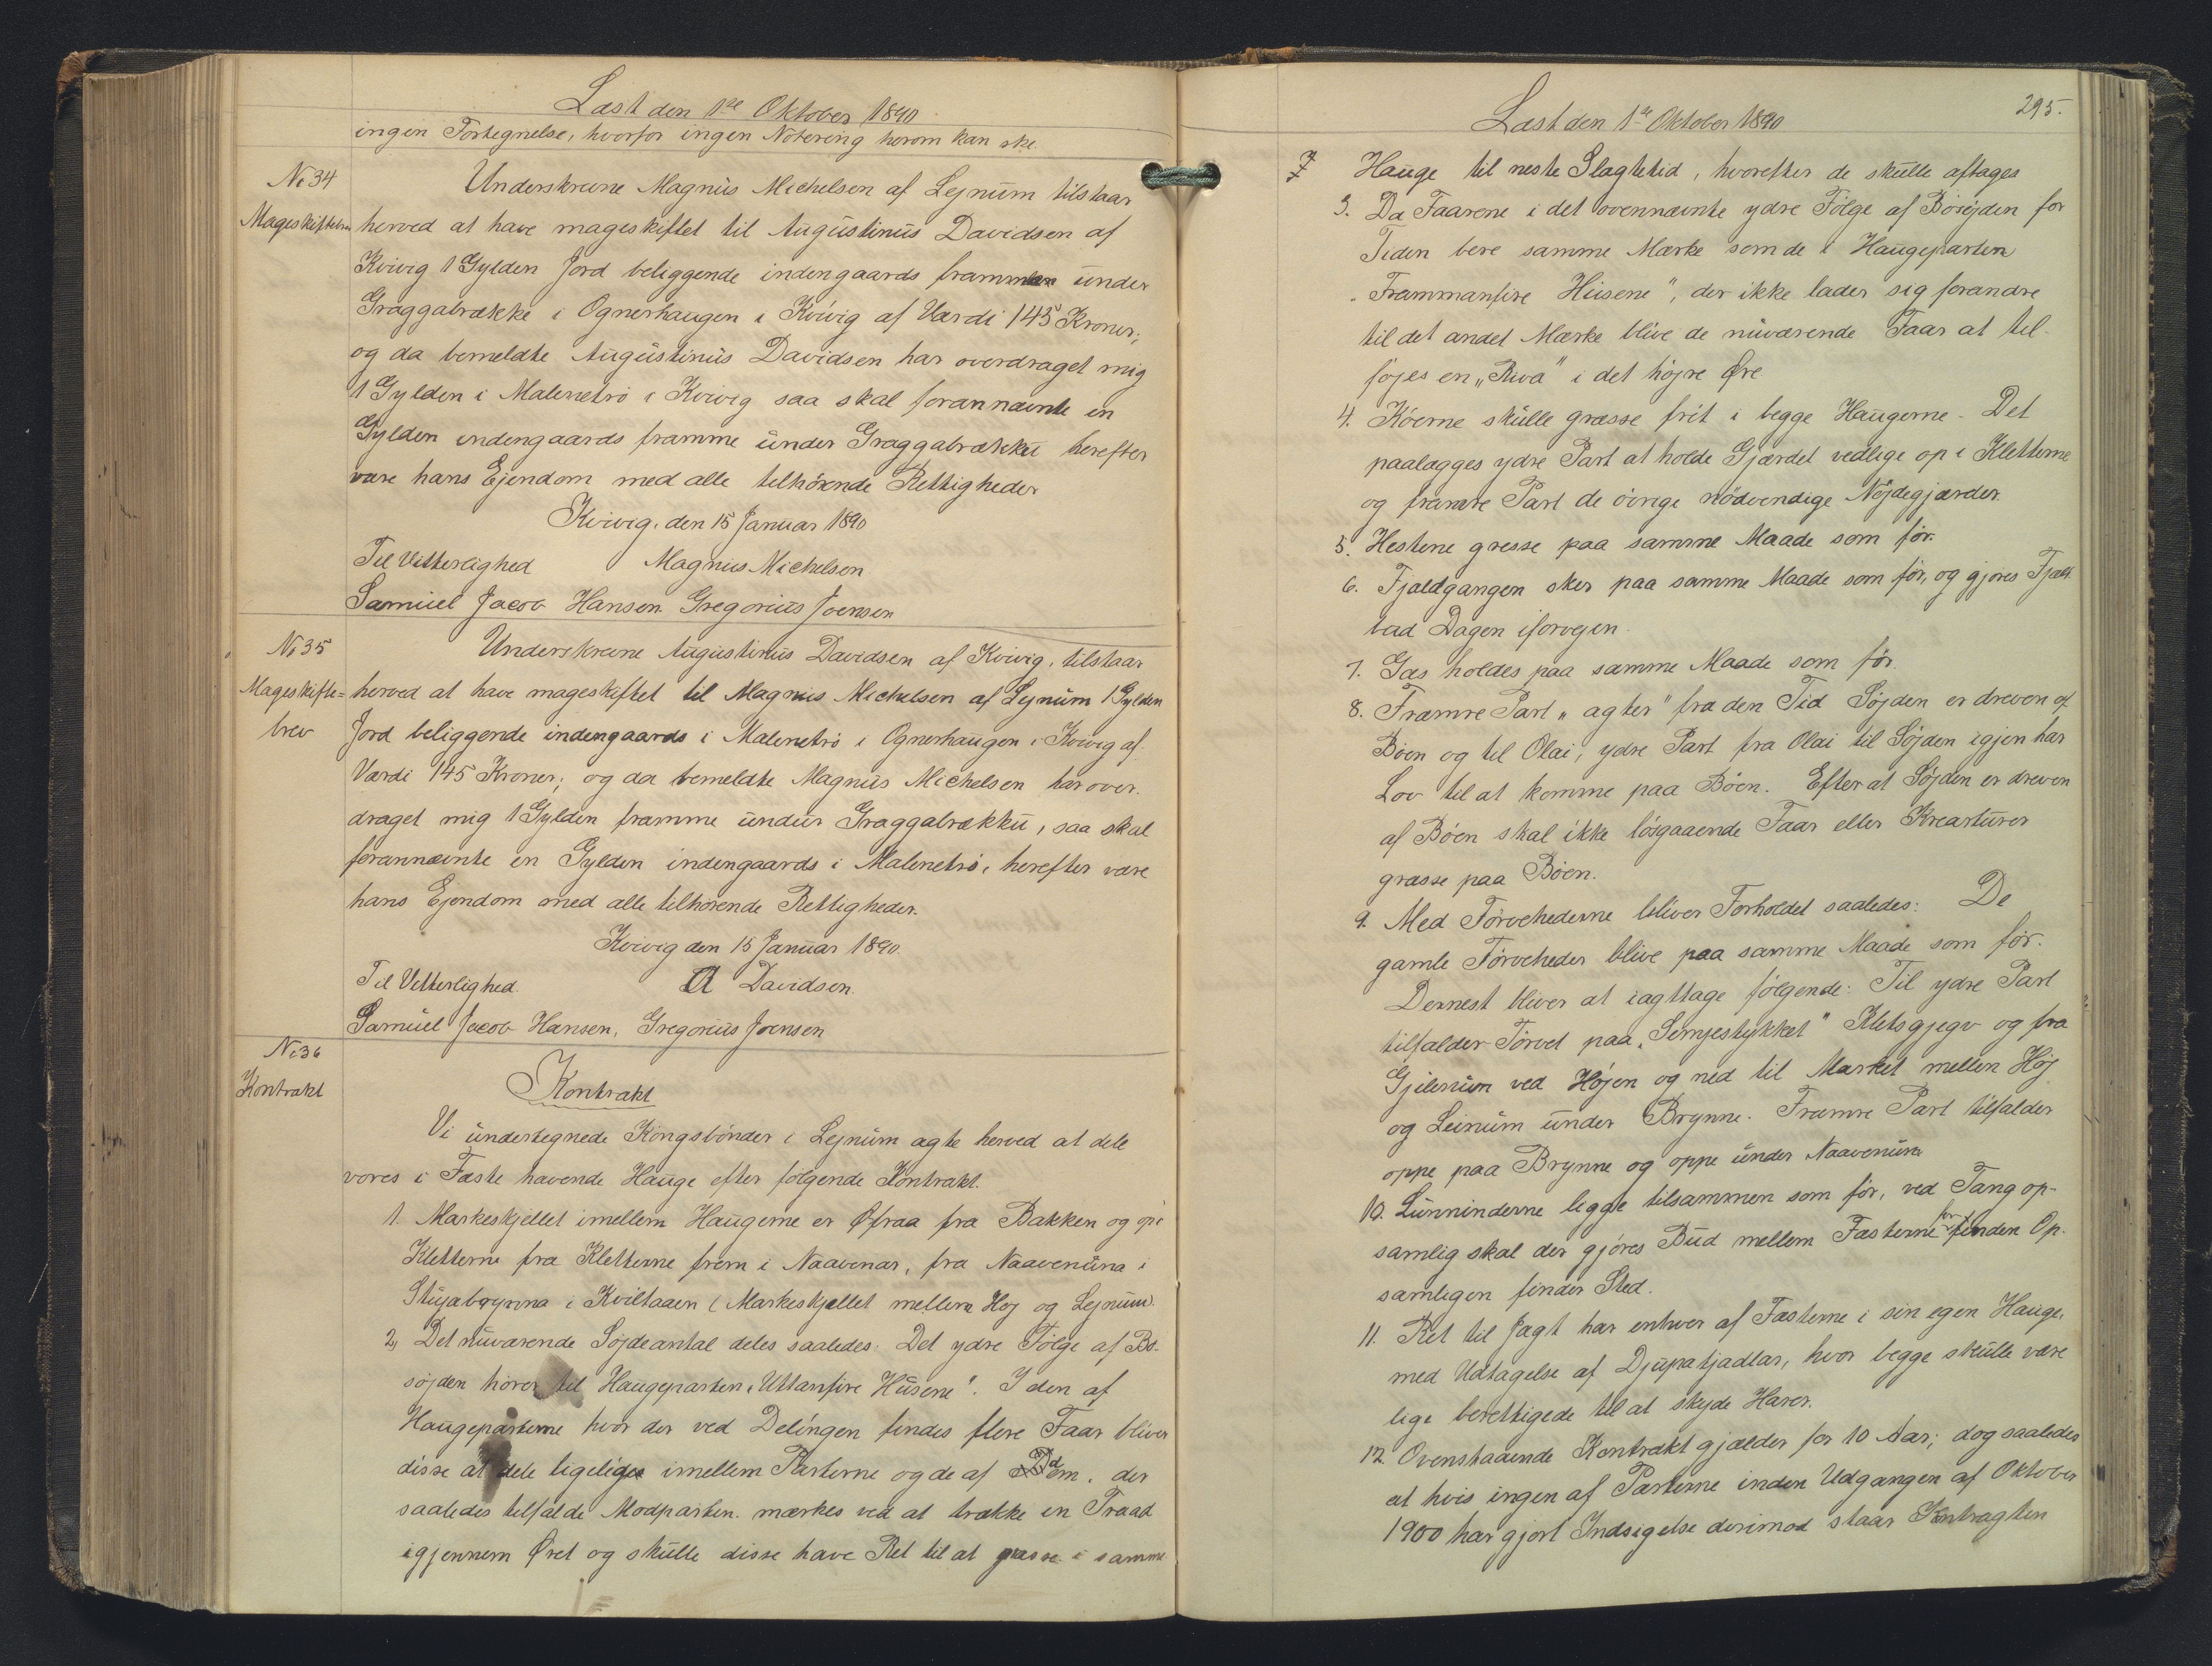 Læst den 1ste Oktober 1890
ingen Fortegnelse, hvorfor ingen Notering herom kan ske.
No 34
Mageskiftebrev
Underskrevne Magnus Michelsen af Lejnum tilstaar
herved at have mageskiftet til Augustinus Davidsen af
Kvivig 1 Gylden Jord beliggende indengaards framme under
Graggabrække i Ognerhaugen i Kvivig af Værdi 145 Kroner;
og da bemeldte Augustinus Davidsen har overdraget mig
1 Gylden i Malenetrö i Kvivig saa skal forannævnte en
Gylden indengaards framme under Graggabrækku herefter
være hans Ejendom med alle tilhörende Rettigheder
Kvivig, den 15 Januar 1890
Til Vitterlighed Magnus Michelsen
Samuel Jacob Hansen Gregorius Joensen
No 35
Mageskifte=
brev
Underskrevne Augustinus Davidsen af Kvivig, tilstaar
herved at have mageskiftet til Magnus Michelsen af Lejnum 1 Gylden
Jord beliggende indengaards i Malenetrö i Ognerhaugen i Kvivig af
Værdi 145 Kroner; og da bemeldte Magnus Michelsen har over-
draget mig 1 Gylden framme undur Graggabrækku, saa skal
forannævnte en Gylden indengaards i Malenetrö, herefter være
hans Ejendom med alle tilhörende Rettigheder.
Kvivig den 15 Januar 1890.
Til Vitterlighed. A Davidsen.
Samuel Jacob Hansen, Gregorius Joensen
No 36
Kontrakt
Kontrakt
Vi undertegnede Kongsbönder i Lejnum agte herved at dele
vores i Fæste havende Hauge efter fölgende Kontrakt.
1. Markeskjellet imellem Haugerne er Øfraa fra Bakken og op i
Kletterne fra Kletterne frem i Naavenar, fra Naavenuna i
Stuyabrynna i Kviltaaen (Markeskjellet mellem Hoj og Lejnum).
2, Det nuværende Söjdeantal deles saaledes: Det ydre Fölge af Bö-
söjden hörer til Haugeparten "Uttanfire Husene". I den af
Haugeparterne hvor der ved Delingen findes flere Faar bliver
disse at dele ligeligen imellem Parterne og de af dem, der
saaledes tilfalde Modparten, mærkes ved at trække en Traad
igjennem Øret og skulle disse have Ret til at græsse i samme
Læst den 1ste Oktober 1890
295.
Hauge til neste Slagtetid, hvorefter de skulle aftages
3. Da Faarene i det ovennævnte ydre Fölge af Bösöjden for
Tiden bere samme Mærke som de i Haugeparten
"Frammanfire Husene", der ikke lader sig forandre
til det andet Mærke blive de nuværende Faar at til-
föjes en "Riva" i det höjre Øre
4. Köerne skulle græsse frit i begge Haugerne. Det
paalægges ydre Part at holde Gjærdet vedlige op i Kletterne
og fremre Part de övrige nödvendige Nöjdegjærder.
5. Hestene gresse paa samme Maade som för.
6. Fjældgangen sker paa samme Maade som för, og gjöres Fjæld-
bud Dagen iforvejen.
7. Gæs holdes paa samme Maade som för.
8. Fremre Part "agter" fra den Tid Söjden er dreven af
Böen og til Olai, ydre Part fra Olai til Söjden igjen har
Lov til at komme paa Böen. Efter at Söjden er dreven
af Böen skal ikke lösgaaende Faar eller Kreaturer
græsse paa Böen.
9. Med Törvehederne bliver Forholdet saaledes: De
gamle Törveheder blive paa samme Maade som för.
Dernest bliver at iagttage fölgende: Til ydre Part
tilfalder Törvet paa "Semjestykket" Kletsgjegv og fra
Gjilenum ved Höjen og ned til Market mellem Höj
og Leinum under Brynne. Fremre Part tilfalder
oppe paa Brynne og oppe under Naavenuna
10. Lunninderne ligge tilsammen som för, ved Tang op-
samlig skal der gjöres Bud mellem Fæsterne för inden Op-
samligen finder Sted.
11. Ret til Jagt har enhver af Fæsterne i sin egen Hauge,
med Udtagelse af Djupatjadlar, hvor begge skulle være
lige berettigede til at skyde Harer.
12. Ovenstaaende Kontrakt gjælder for 10 Aar; dog saaledes
at hvis ingen af Parterne inden Udgangen af Oktober
1900 har gjort Indsigelse derimod staar Kontragten